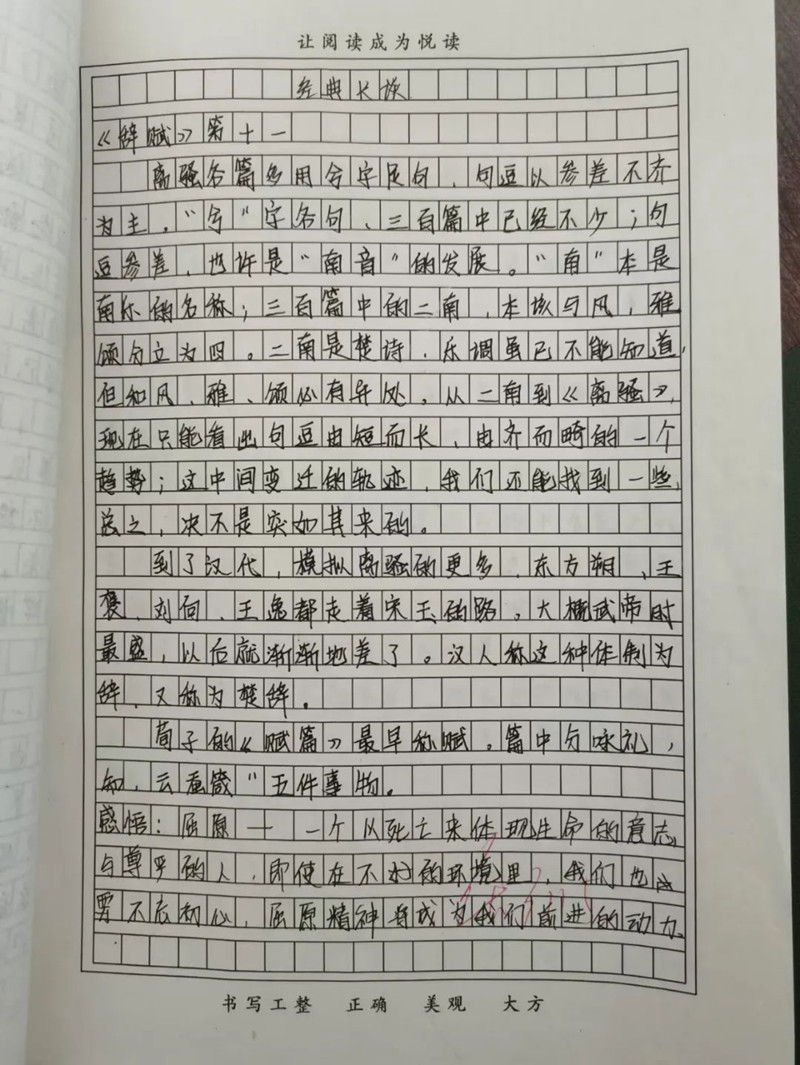 让阅读成为悦读
经典长谈
《辞赋》第十一
离骚各篇多用兮字足句，句豆以参差不齐
为主。“兮”字各句，三百篇中已经不少；句
豆参差，也许是“南音”的发展。“南”本是
南乐的名称；三百篇中的二南，本该与风，雅
颂分立为四。二南是楚诗，乐调虽已不能知道，
但和风、雅、颂必有异处。从二南到《离骚》，
现在只能看出句豆由短而长，由齐而畸的一个
趋势；这中间变迁的轨迹，我们还能找到一些，
总之，决不是突如其来的。
到了汉代，模拟离骚的更多，东方朔、王
褒、刘向、王逸都走着宋玉的路。大概武帝时
最盛，以后就渐渐地差了。汉人称这种体制为
辞，又称为楚辞。
荀子的《赋篇》最早称赋。篇中分咏礼，
知，云蚕箴”五件事物。
感悟：屈原——一个以死亡来体现生命的意志
与尊严的人，即使在不好的环境里，我们也
要不忘初心，屈原精神将成为我们前进的动力。
书写工整 正确 美观 大方